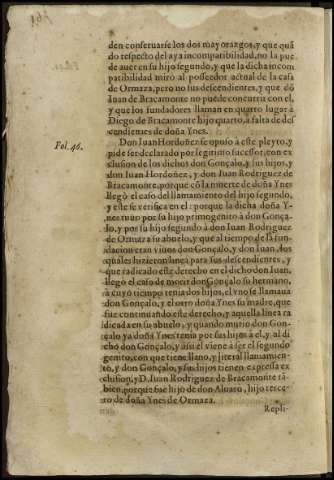 den conseruarse los dos mayorazgos, y que quã
do respecto del aya incompatibilidad, no la pue
de auer en su hijo segundo, y que la dicha incom
patibilidad miro al posseedor actual de la casa
de Ormaza, pero no sus descendientes, y que dõ
Iuan de Bracamonte no puede concurrir con el,
y que los fundadores llaman en quarto lugar à
Diego de Bracamonte hijo quarto, à falta de des
cendientes de doña Ynes.
Fol. 46.
Don Iuan Hordoñez se opuso à este pleyto, y
pide ser declarado por legitimo sucessor, con ex
clusion de los dichos don Gonçalo, y sus hijos, y
don Iuan Hordoñez, y don Iuan Rodriguez de
Bracamonte, porque cõ la muerte de doña Ynes
llegò el caso del llamamiento del hijo segundo,
y este se verifica en el: porque la dicha doña Y-
nes tuuo por su hijo primogenito à don Gonça-
lo, y por su hijo segundo à don Iuan Rodriguez
de Ormaza su abuelo, y que al tiempo de la fun-
dacion eran viuos don Gonçalo, y don Iuan, los
quales hizieron linea para sus descendientes, y
que radicado este derecho en el dicho don Iuan,
llegò el caso de morir don Gonçalo su hermano,
à cuyo tiempo tenia dos hijos, el vno se llamaua
don Gonçalo, y el otro doña Ynes su madre, que
fue continuando este derecho, y aquella linea ra
dicada en su abuelo, y quando murio don Gon-
çalo ya doña Ynes tenia por sus hijos à el, y al di
cho don Gonçalo, y assi el viene à ser el segundo
genito, con que tiene llano, y literal llamamien-
to, y don Gonçalo, y sus hijos tienen expressa ex
clusion, y D. Iuan Rodriguez de Bracamonte tã-
bien, porque fue hijo de don Aluaro, hijo terce-
ro de doña Ynes de Ormaza.
Repli-